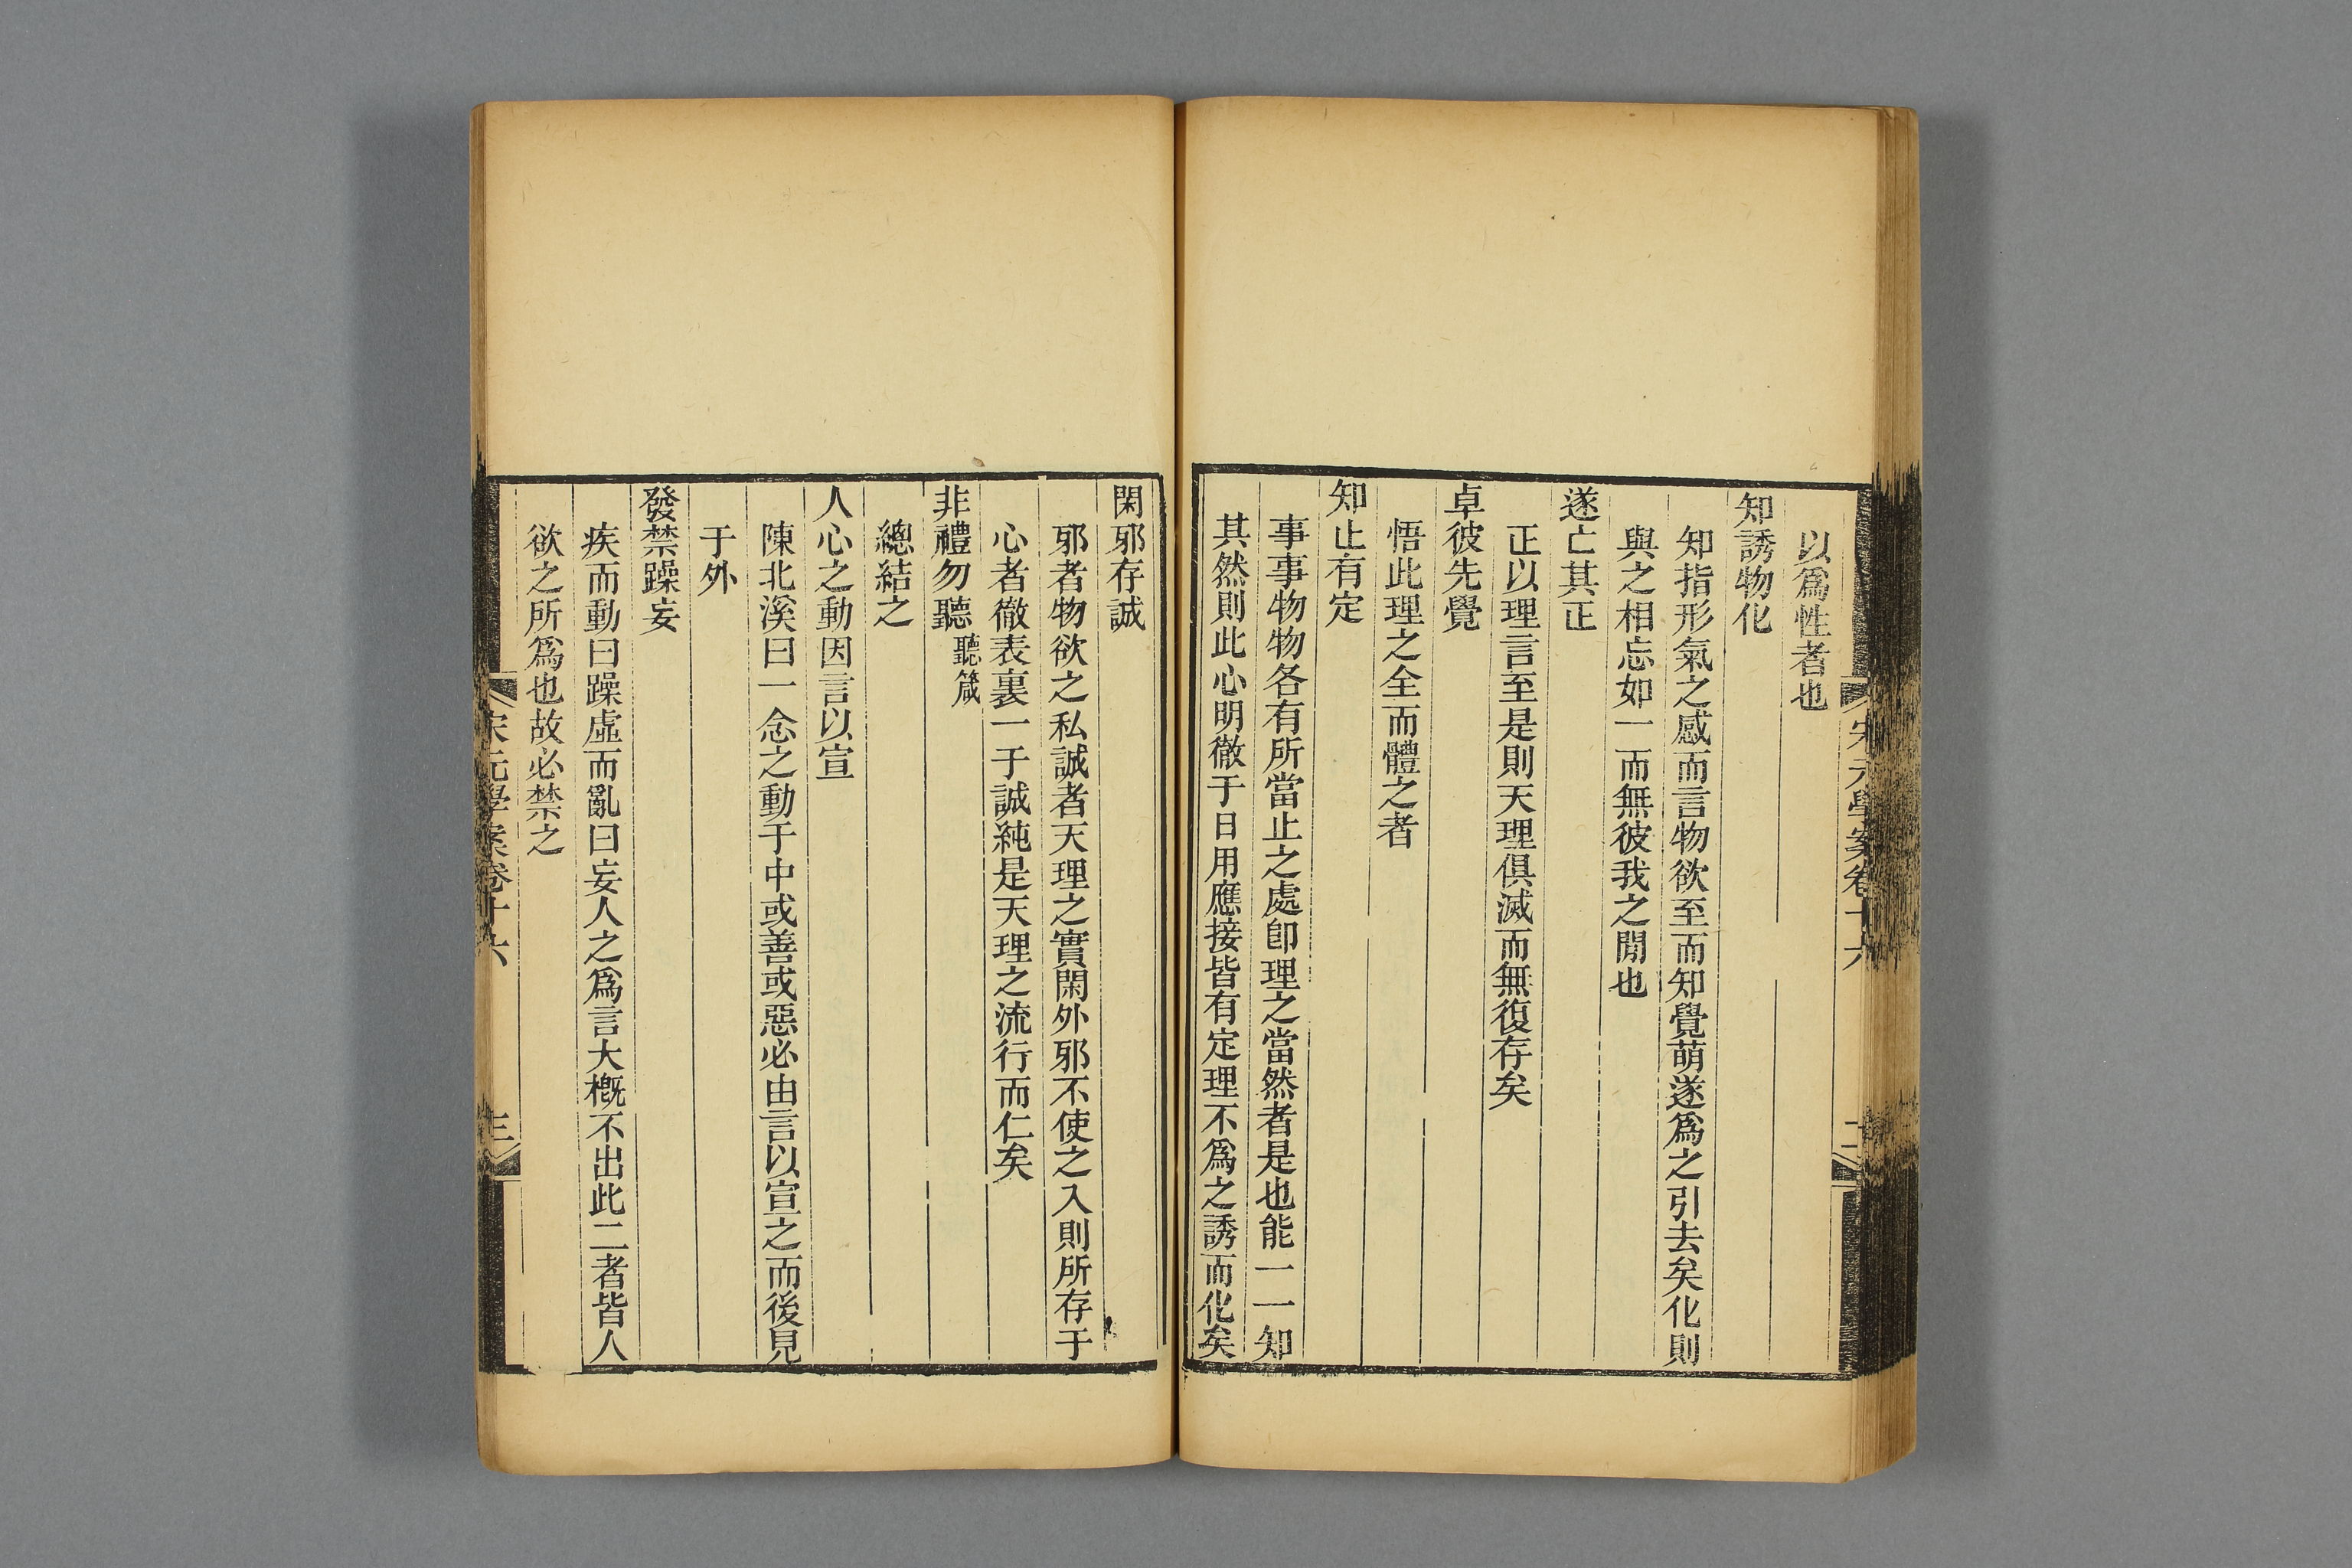 宋元學案卷十六
以爲性者也
知誘物化
知指形氣之感而言物欲至而知覺萌遂爲之引去矣化則
與之相忘如一而無彼我之閒也
遂亡其正
正以理言至是則天理俱滅而無復存矣
卓彼先覺
悟此理之全而體之者
知止有定
事事物物各有所當止之處卽理之當然者是也能一一知
其然則此心明徹于日用應接皆有定理不爲之誘而化矣
閑邪存誠
邪者物欲之私誠者天理之實閑外邪不使之入則所存于
心者徹表裏一于誠純是天理之流行而仁矣
非禮勿聽聽箴
總結之
人心之動因言以宣
陳北溪曰一念之動于中或善或惡必由言以宣之而後見
于外
發禁躁妄
疾而動曰躁虛而亂曰妄人之爲言大槪不出此二者皆人
欲之所爲也故必禁之
宋元學案卷十六
三